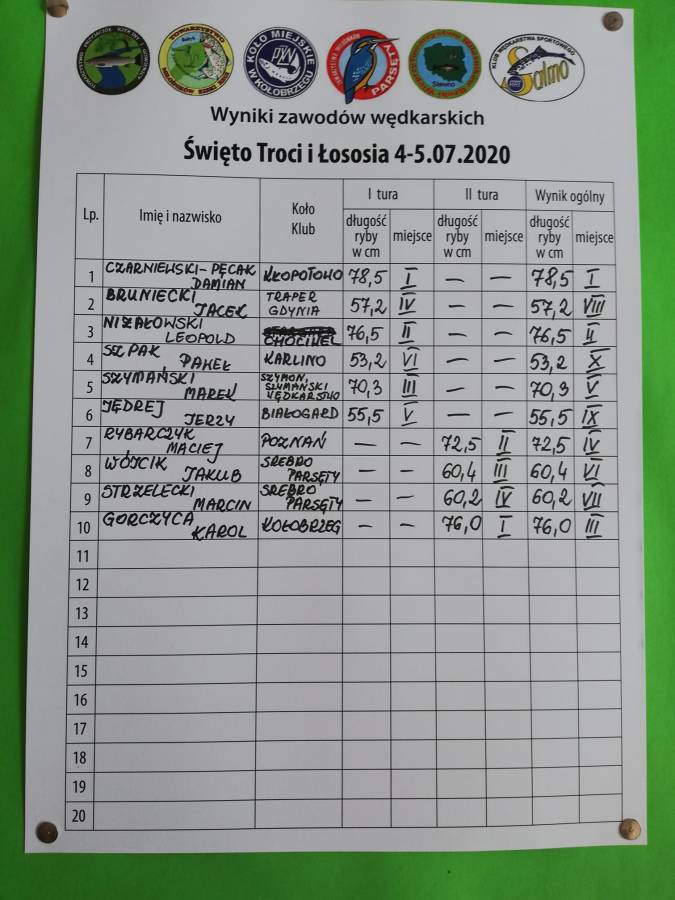 TOWARZYSTWO
KOŁO MIEJSKIE
PZW
W KOŁOBRZEGU
PARSĘTY
KLUB WĘDKARSTWA SPORTOWEGO
Salmo
Wyniki zawodów wędkarskich
Święto Troci i Łososia 4-5.07.2020
Lp. Imię i nazwisko Koło Klub I tura II tura Wynik ogólny
długość ryby w cm miejsce długość ryby w cm miejsce długość ryby w cm miejsce
1 CZARNIEWSKI-PĘCAK DAMIAN KŁOPOTOWO 78,5 I — — 78,5 I
2 BRUNIECKI JACEK TRAPER GDYNIA 57,2 IV — — 57,2 VIII
3 NIZAŁOWSKI LEOPOLD CHOCIWEL 76,5 II — — 76,5 II
4 SZPAK PAWEŁ KARLINO 53,2 VI — — 53,2 X
5 SZYMAŃSKI MAREK 70,3 III — — 70,3 V
6 JĘDREJ JERZY BIAŁOGARD 55,5 V — — 55,5 IX
7 RYBARCZYK MACIEJ POZNAŃ — — 72,5 II 72,5 IV
8 WÓJCIK JAKUB SREBRO PARSĘTY — — 60,4 III 60,4 VI
9 STRZELECKI MARCIN SREBRO PARSĘTY — — 60,2 IV 60,2 VII
10 GORCZYCA KAROL KOŁOBRZEG — — 76,0 I 76,0 III
11
12
13
14
15
16
17
18
19
20